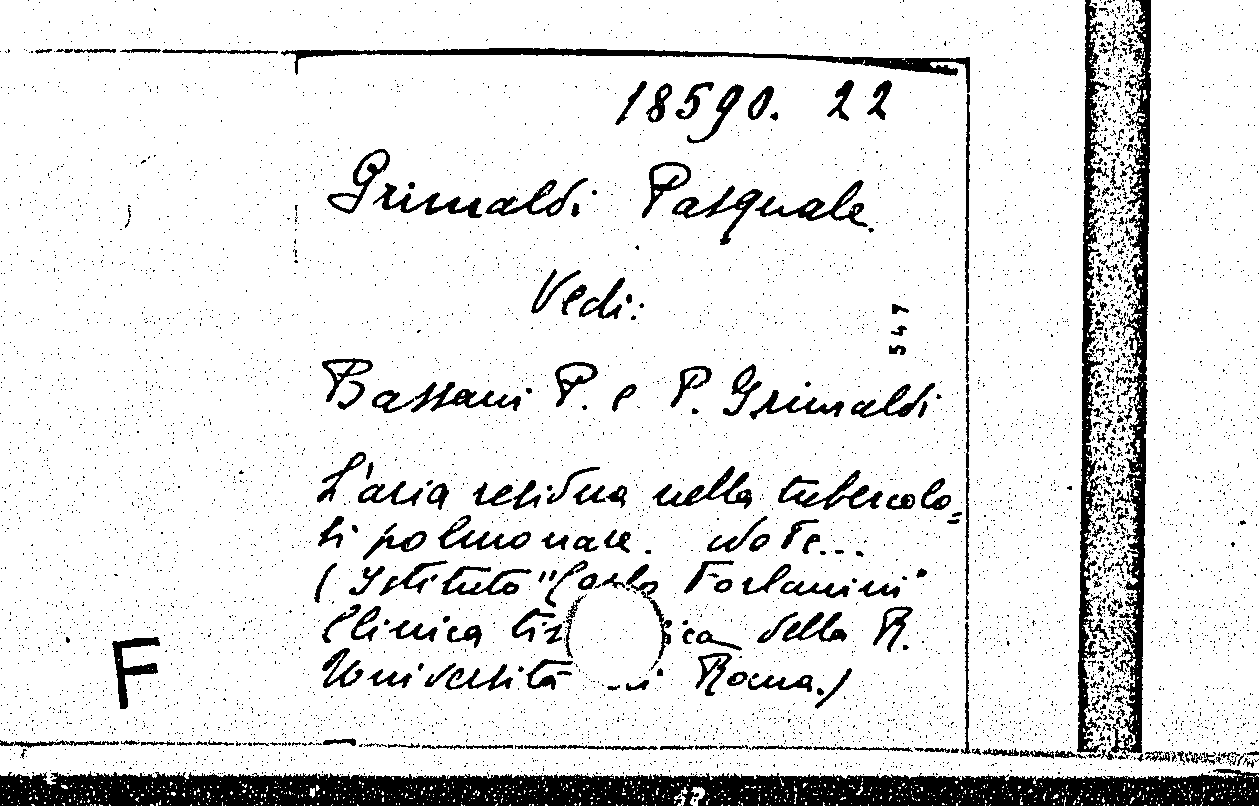 18590. 22
Grimaldi Pasquale.
Vedi:
547
Bassani P. e P. Grimaldi
L'aria residua nella tubercolo=
si polmonare. Note...
(Istituto "Carlo Forlanini"
Clinica tis ica della R.
Università di Roma.)
F